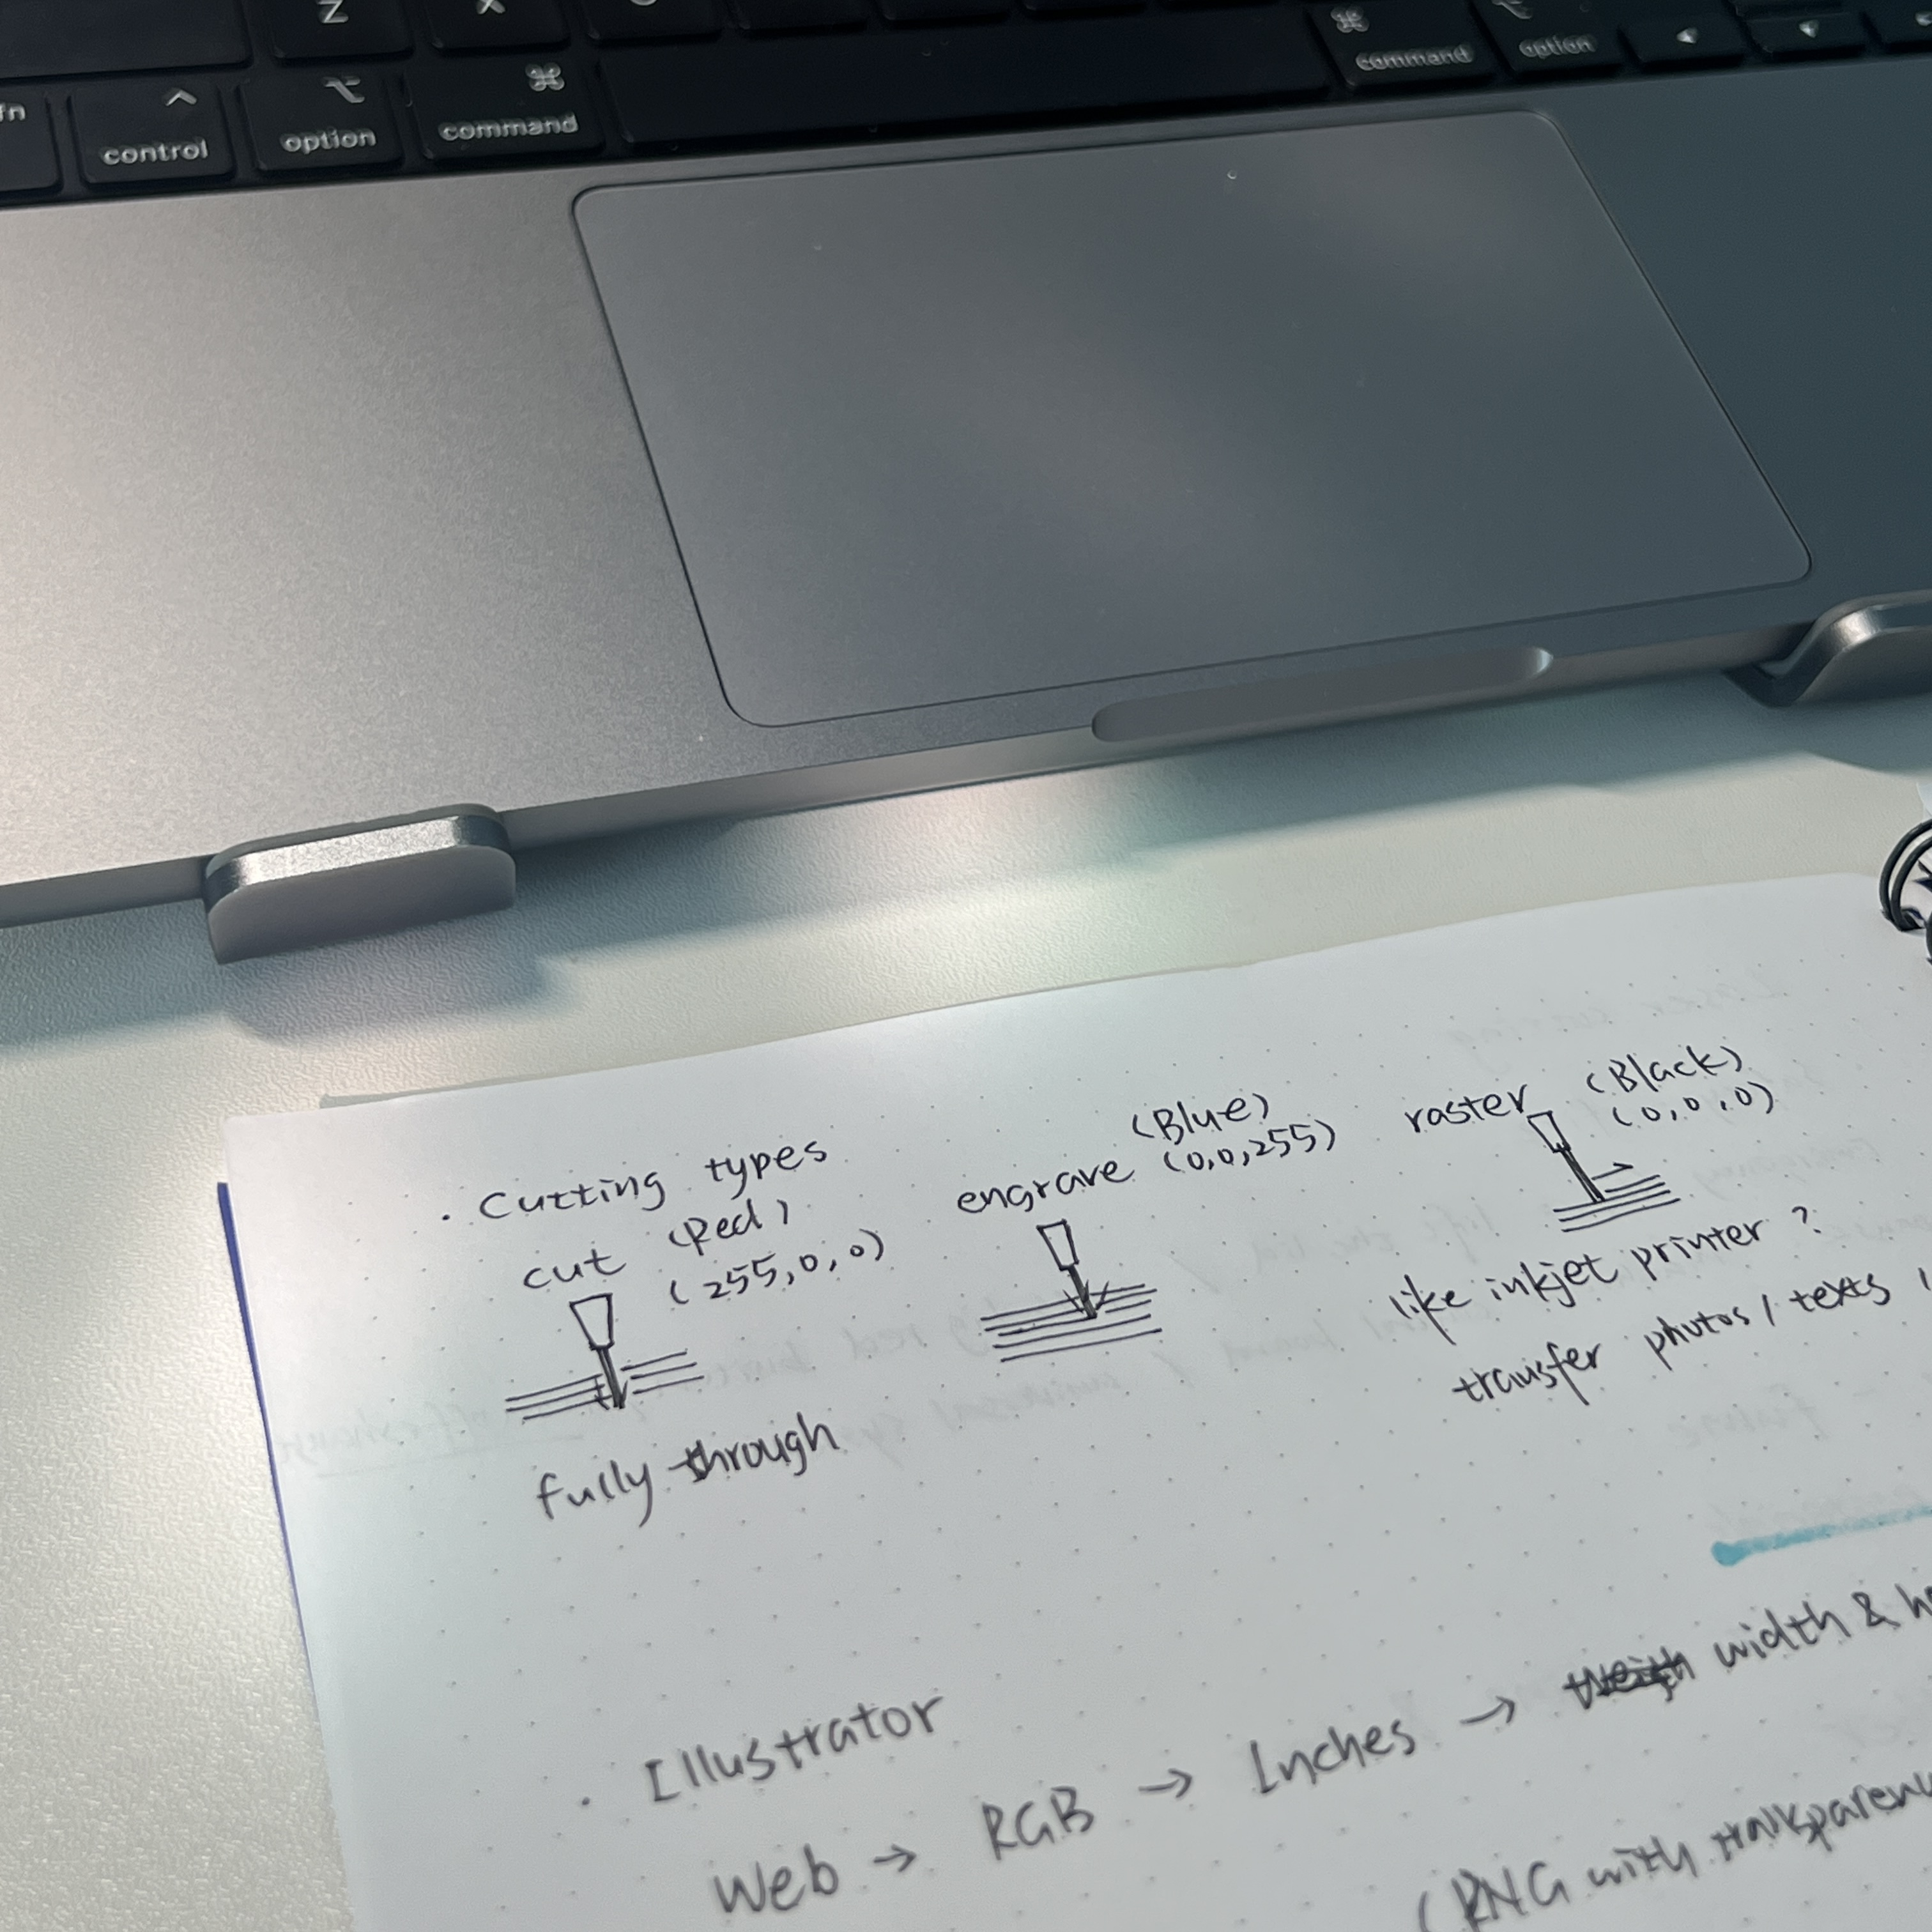 Z X
⌘ command option
fn control option ⌘ command
· Cutting types
cut (Red)
(255,0,0)
fully through
engrave (Blue)
(0,0,255)
raster (Black)
(0,0,0)
like inkjet printer ?
transfer photos / texts
· Illustrator
Web → RGB → Inches → width &
(PNG with